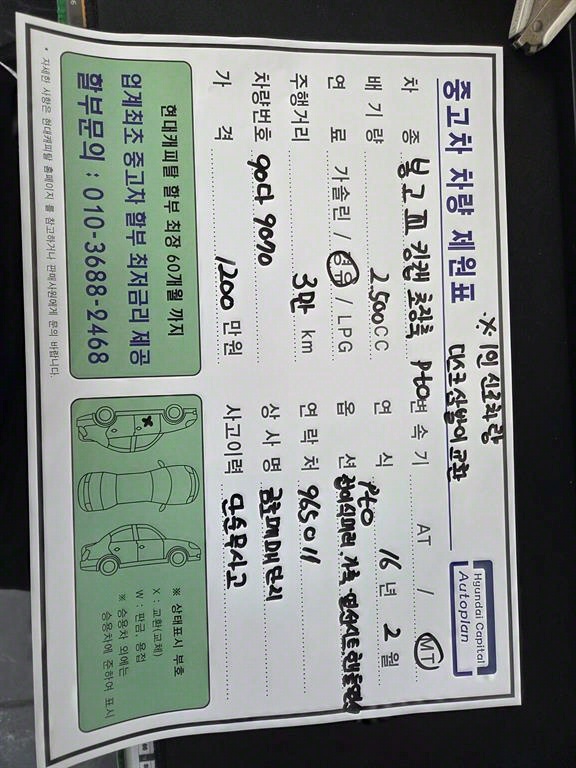 중고차 차량 제원표
※ 1인 신조차량
디스크 삼발이 교환
Hyundai Capital
Autoplan
차 종 봉고Ⅲ 킹캡 초장축 PTO
변속기 AT / MT
배기량 2,500CC
연 식 16년 2월
연 료 가솔린 / 경유 / LPG
옵 션 PTO
가죽, 열선시트, 핸들열선
주행거리 3만 km
연락처 965011
차량번호 90다 9070
상사명 매매단지
가 격 1200 만원
사고이력 단순무사고
현대캐피탈 할부 최장 60개월 까지
업계최초 중고차 할부 최저금리 제공
할부문의 : 010-3688-2468
※ 상태표시 부호
X : 교환(교체)
W : 판금, 용접
※ 승용차 외에는
승용차에 준하여 표시
* 자세한 사항은 현대캐피탈 홈페이지 를 참고하거나 판매사원에게 문의 바랍니다.